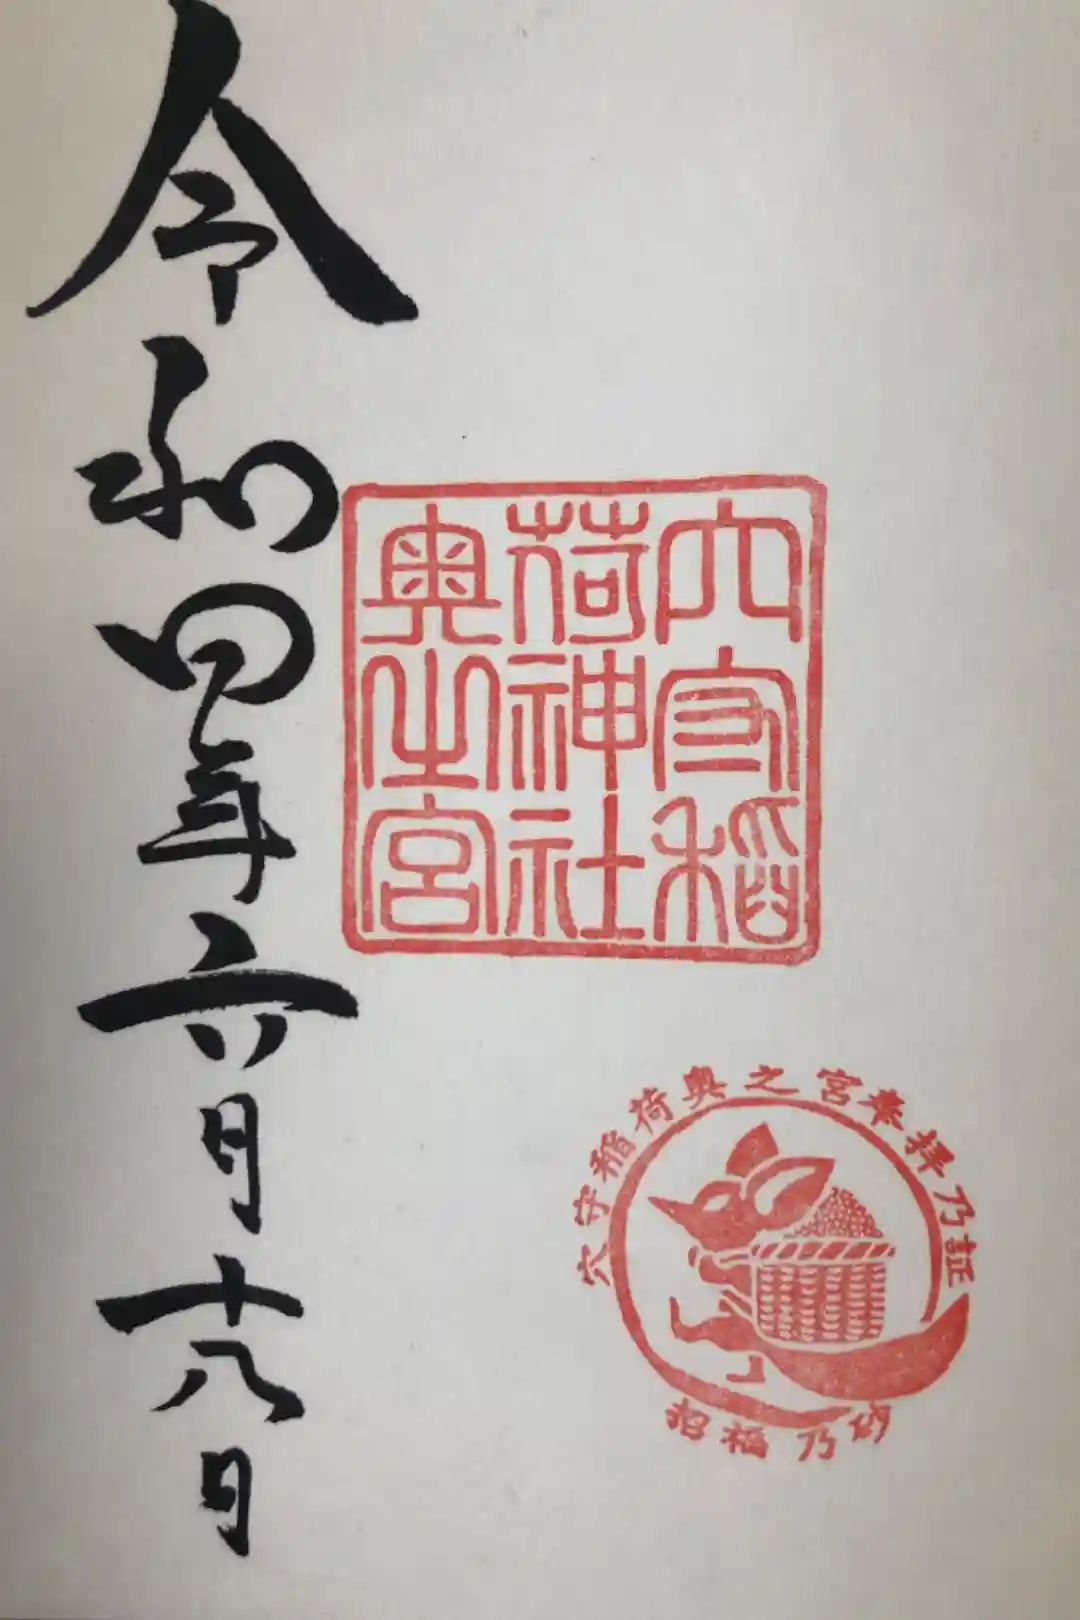 穴守稲
荷神社
奥之宮
穴守稲荷奥之宮奉拝乃証
招福乃砂
令和四年六月十八日